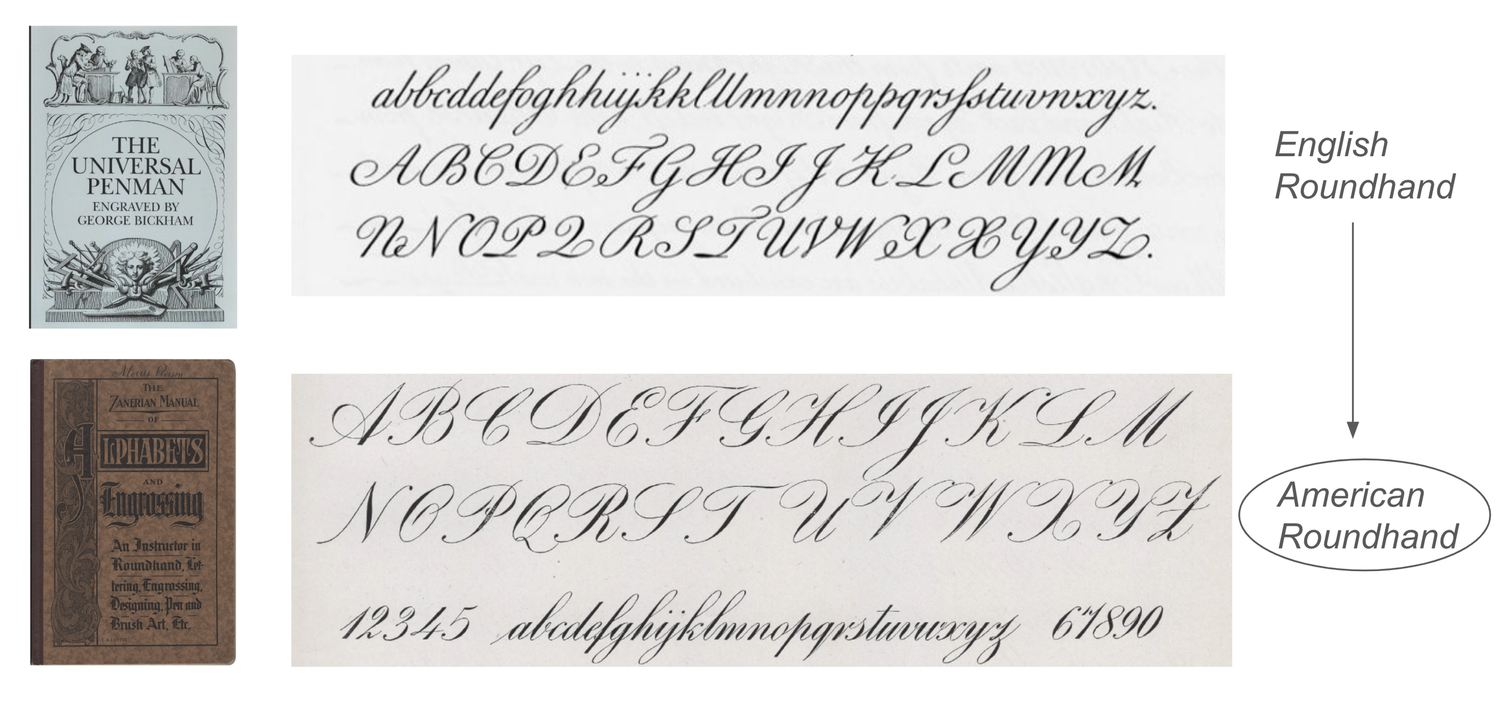 THE
UNIVERSAL
PENMAN
ENGRAVED BY
GEORGE BICKHAM
abbcddefoghhiijkklllmnnnoppqrsſstuvwxyz.
ABCDEFGHIJKLMMM
NNOPQRSTUVWXXYYZ.
English
Roundhand
THE
ZANERIAN MANUAL
OF
ALPHABETS
AND
Engrossing
An Instructor in
Roundhand, Let-
tering, Engrossing,
Designing, Pen and
Brush Art, Etc.
ABCDEFGHIJKLM
NOPQRSTUVWXYZ
12345 abcdefghijklmnopqrstuvwxyz 67890
American
Roundhand